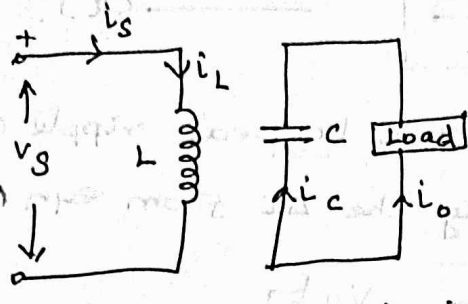 +
i_S
i_L
v_S
L
C
Load
i_C
i_o